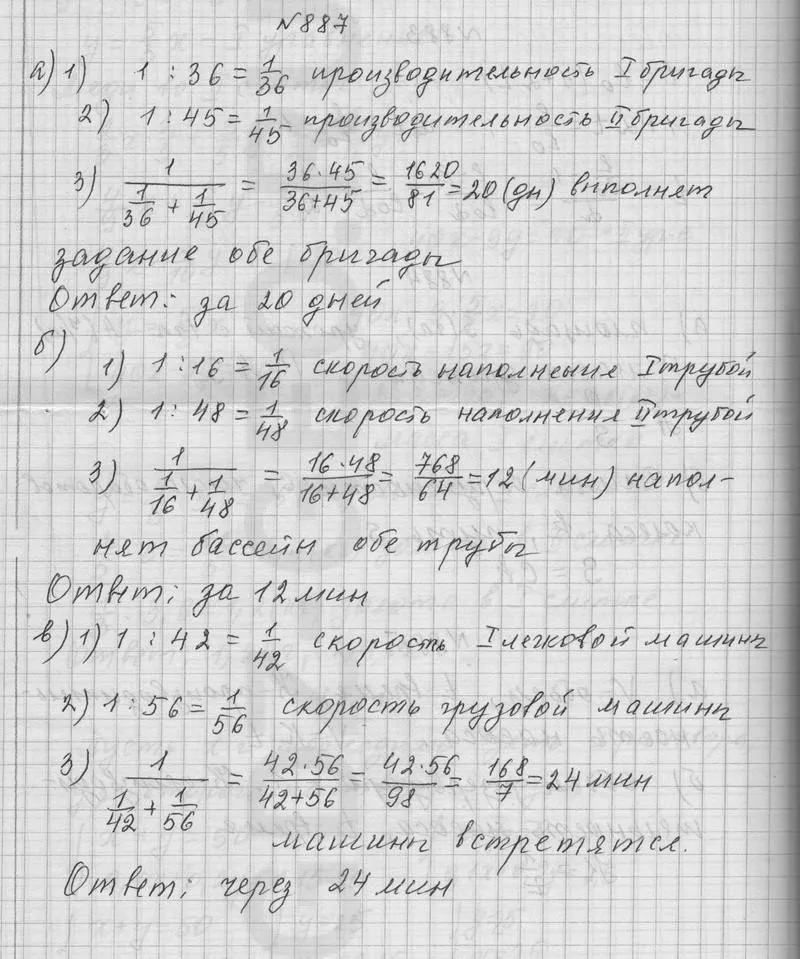 №887
а) 1) 1 : 36 = 1/36 производительность I бригады
2) 1 : 45 = 1/45 производительность II бригады
3) 1/(1/36 + 1/45) = 36·45/(36+45) = 1620/81 = 20 (дн) выполнят
задание обе бригады
Ответ: за 20 дней
б)
1) 1 : 16 = 1/16 скорость наполнения I трубой
2) 1 : 48 = 1/48 скорость наполнения II трубой
3) 1/(1/16 + 1/48) = 16·48/(16+48) = 768/64 = 12 (мин) напол-
нят бассейн обе трубы
Ответ: за 12 мин
в) 1) 1 : 42 = 1/42 скорость I легковой машины
2) 1 : 56 = 1/56 скорость грузовой машины
3) 1/(1/42 + 1/56) = 42·56/(42+56) = 42·56/98 = 168/7 = 24 мин
машины встретятся.
Ответ: через 24 мин